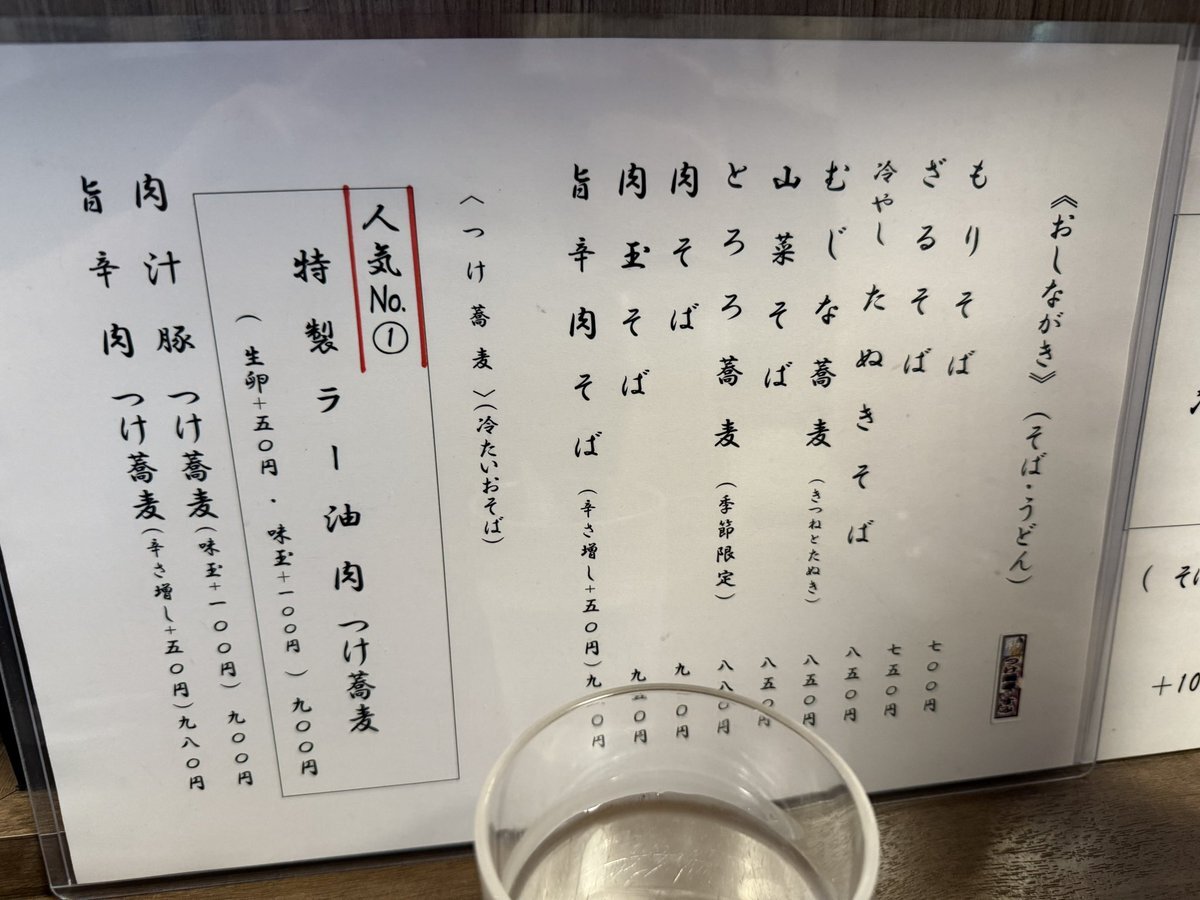 《おしながき》(そば・うどん)
もりそば 七〇〇円
ざるそば 七五〇円
冷やしたぬきそば 八五〇円
むじな蕎麦(きつねとたぬき) 八五〇円
山菜そば 八五〇円
とろろ蕎麦(季節限定) 八八〇円
肉そば
肉玉そば
旨辛肉そば(辛さ増し+五〇円)
〈つけ蕎麦〉(冷たいおそば)
人気No.①
特製ラー油肉つけ蕎麦
(生卵+五〇円・味玉+一〇〇円) 九〇〇円
肉汁豚つけ蕎麦(味玉+一〇〇円) 九〇〇円
旨辛肉つけ蕎麦(辛さ増し+五〇円)九八〇円